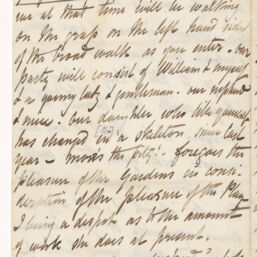 us at that time will be walking
on the grass on the left hand side
of the broad walk as you enter. Our
party will consist of William & myself
& a young lady & gentleman. our nephew
& niece. Our daughter who like yourself
has changed in a skeleton since last
year - foregoes the
pleasure of the Gardens in consi-
deration of the pleasure of the Play
I being a despot as to the amount
of work she does at present.